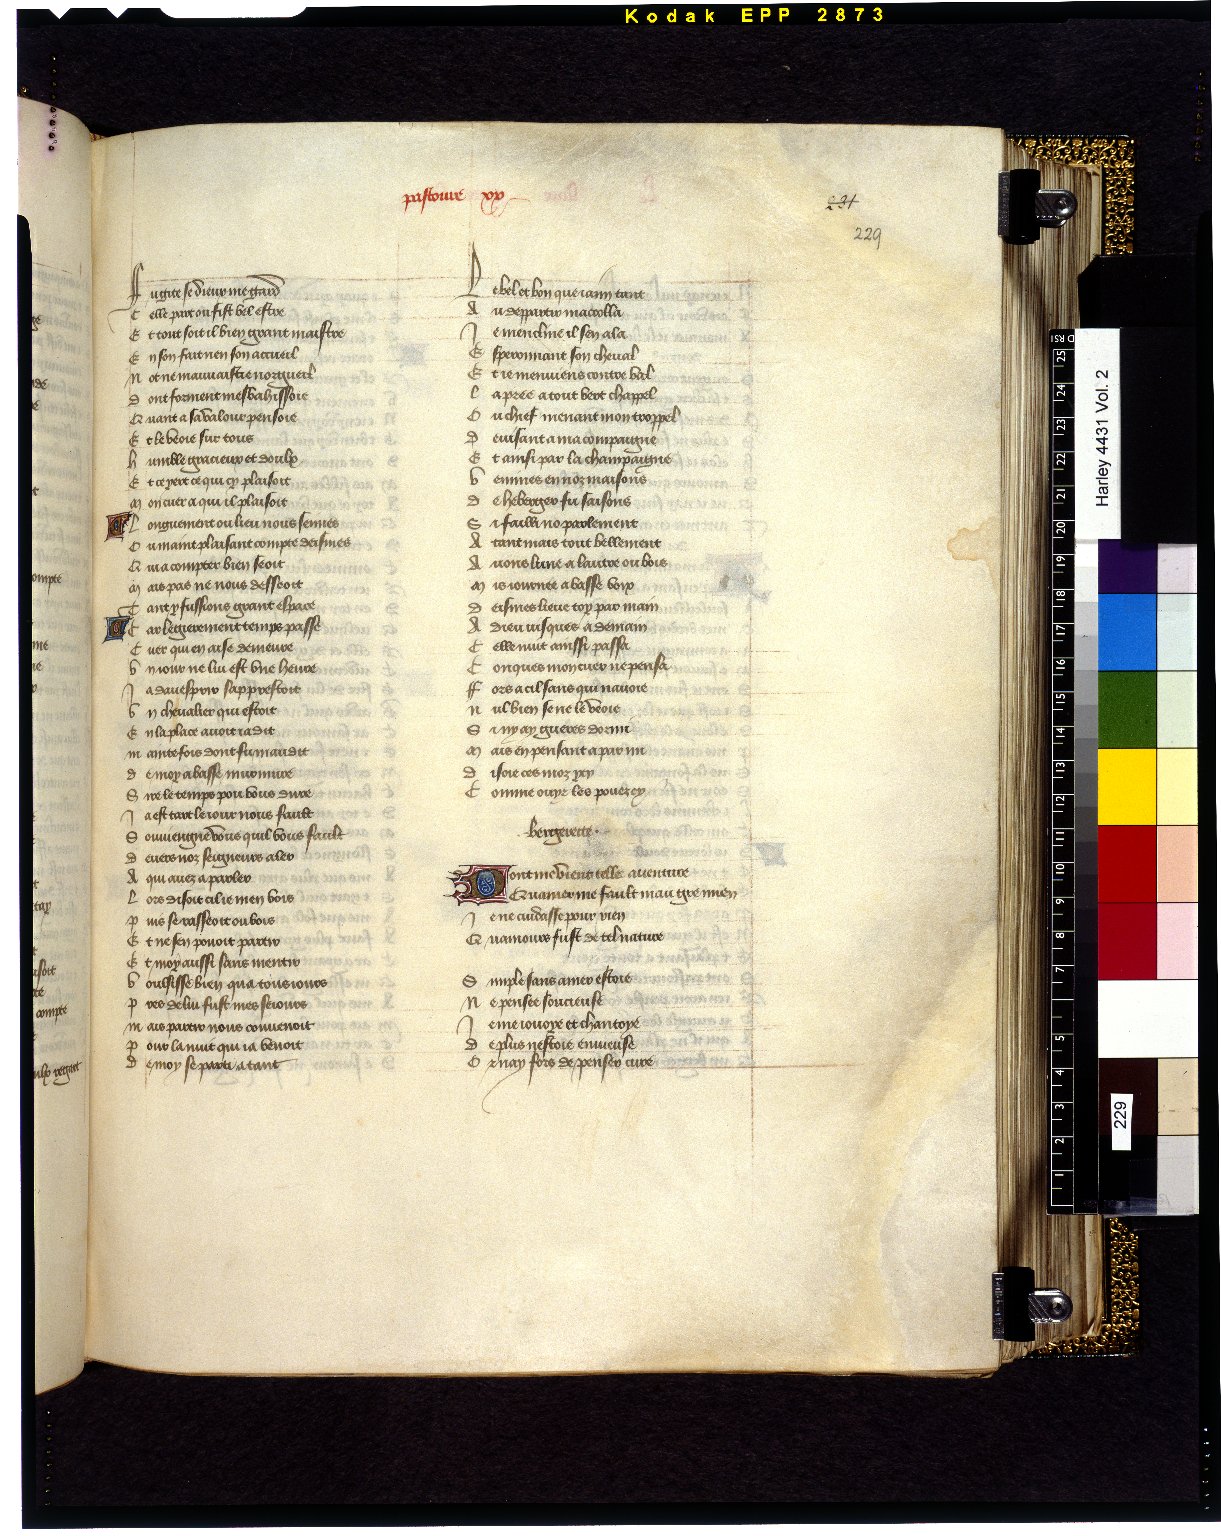 Kodak EPP 2873
pastoure xx
231
229
A ugite se dieux me gard
C elle part ou fist bel estre
E t tout soit il bien grant maistre
E n son fait nen son accueil
N ot ne mauuaistie norgueil
D ont forment mesbahissoie
Q uant a sa valour pensoie
E t le veoie sur tous
H umble gracieux et doulx
E t ce yert ce qui cy plaisoit
M on cuer a qui il plaisoit
L onguement ou lieu nous seimes
O u maint plaisant compte deismes
Q ui a compter bien seoit
M ais pas ne nous desseoit
T ant y fussions grant espace
C ar legierement temps passe
C uer qui en aise demeure
V n iour ne lui est vne heure
J a dauesprir sapprestoit
V n chevalier qui estoit
E n la place auoit ia dit
M aintefois dont fu maudit
D e moy a basse murmure
S ire le temps pou vous dure
J a est tart le iour nous fault
S ouuiengne vous quil vous fault
D euers noz seigneurs aler
A qui auez a parler
L ors disoit cil ie men vois
P uis se rasseoit ou bois
E t ne sen pouoit partir
E t moy aussi sans mentir
V oulsisse bien qua tousiours
P res de lui fust mes seiours
M ais partir nous conuenoit
P our la nuit qui ia venoit
D e moy se parti a tant
L e bel et bon que iaim tant
A u departir macolla
J e mencline il sen ala
E speronnant son cheual
E t ie men viens contre val
L a pree a tout vert chappel
O u chief menant mon troppel
D euisant a ma compaigne
E t ainsi par la champaigne
V enimes en noz maisons
D e heberger fu saisons
S i failli no parlement
A tant mais tout bellement
A uons lune a lautre ou bois
M is iournee a basse voix
D eismes lieue toy par main
A dieu iusques a demain
C elle nuit ainssi passa
C onques mon cuer ne pensa
FF ors a cil sans qui nauoie
N ul bien se ne le veoie
S i ny ay gueres dormi
M ais en pensant a par mi
D isoie ces moz ycy
C omme ouyr les pouez cy
. bergerette .
D ont me vient telle auenture
Q uamer me fault mau gre mien
J e ne cuidasse pour rien
Q uamours fust de tel nature
S imple sans amer estoie
N e pensee soucieuse
J e me iouoye et chantoye
D e plus nestoie enuieuse
O r nay fors de penser cure
Harley 4431 Vol. 2
229